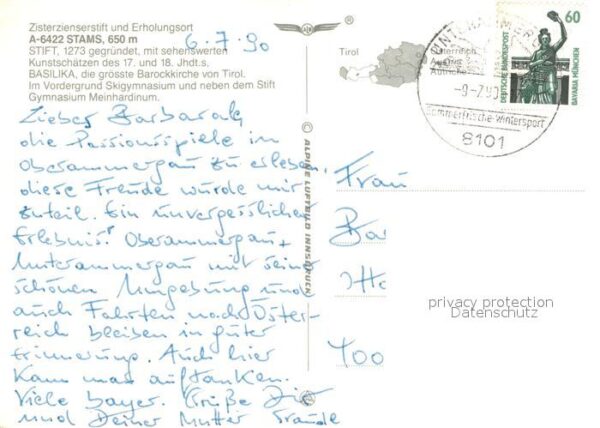 Zisterzienserstift und Erholungsort
A-6422 STAMS, 650 m
STIFT, 1273 gegründet, mit sehenswerten
Kunstschätzen des 17. und 18. Jhdt.s.
BASILIKA, die grösste Barockkirche von Tirol.
Im Vordergrund Skigymnasium und neben dem Stift
Gymnasium Meinhardinum.
6.7.90
Liebes
die Passionsspiele in
Oberammergau zu erleben,
diese Freude wurde mir
zuteil. Ein unvergessliches
Erlebnis! Oberammergau +
Unterammergau mit seiner
schönen Umgebung und
auch Fahrten nach Öster-
reich bleiben in guter
Erinnerung. Auch hier
kann man auftanken.
Viele bayer. Grüße Dir
und Deiner Mutter Traude
Tirol
Österreich
© ALPINE LUFTBILD INNSBRUCK
60
DEUTSCHE BUNDESPOST
BAVARIA MÜNCHEN
-9-7.90
Sommerfrische-Wintersport
8101
Frau
Bar
Otto
400
privacy protection
Datenschutz